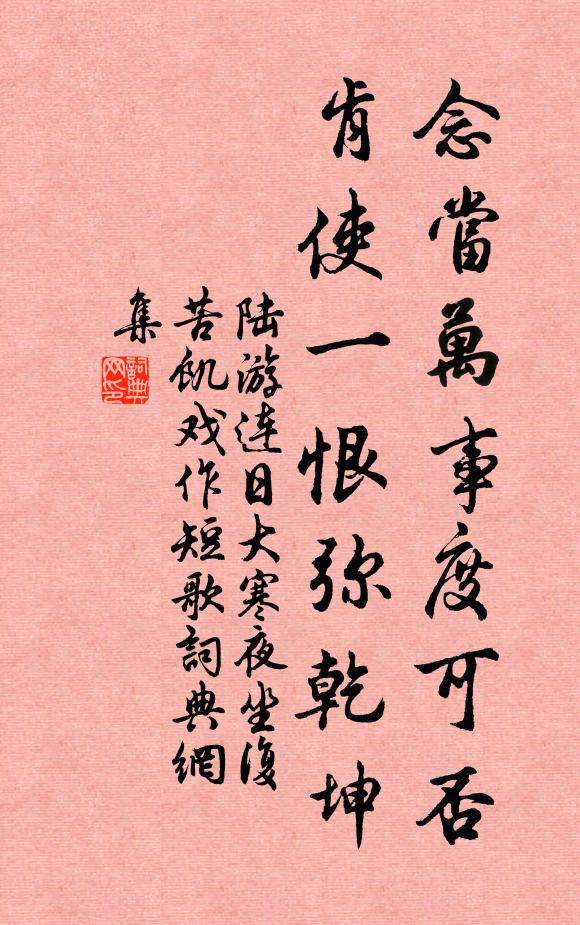 念當萬事度可否
肯使一恨弥乾坤
陆游连日大寒夜坐復
苦飢戏作短歌詞典網
集
詞典
网印